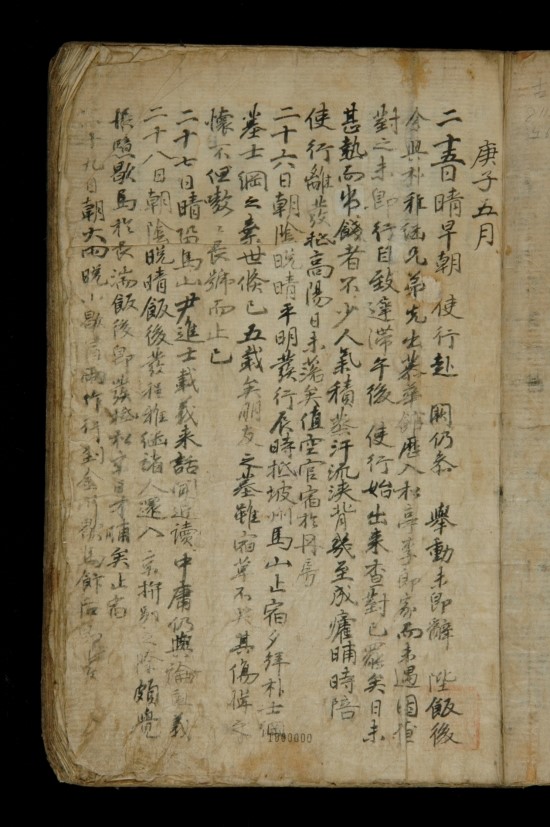 庚子五月
二十五日晴早朝 使行赴 闕仍參 擧動未卽辭 陛飯後
余與朴雅繼兄弟先出慕華館歷入松亭李郎家而未遇因
對之未卽行自致遲滯午後 使行始出來査對已罷矣日未
甚熱而出餞者不少人氣積蒸汗流浹背幾至成癨晡時陪
使行離發抵高陽日未落矣値空官宿於冊房
二十六日朝陰晩晴平明發行辰時抵坡州馬山止宿夕拜朴士綱
墓士綱之棄世倏已五載矣朋友之墓雖宿草不 其傷悼之
懷不但嗷嗷長號而止已
二十七日晴 馬山尹進士載義來話聞近讀中庸仍與論 義
二十八日朝陰晩晴飯後發程雅繼諸人還入京 別之際頗覺
黯歇馬於長湍飯後卽發抵松 日 晡矣止宿
二十九日朝大雨晩小歇 雨作行到金 歇馬 后